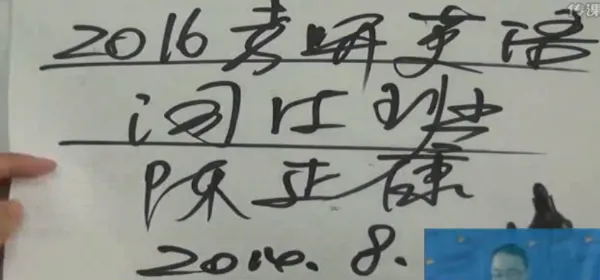 传课
2016考研英语
词汇班
陈正康
2014.8.